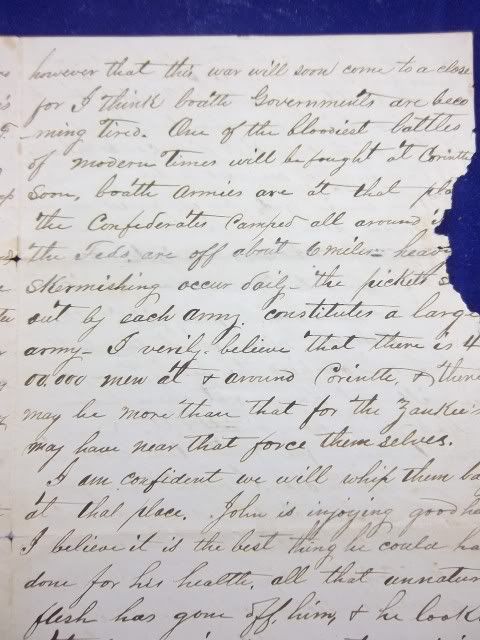 however that this war will soon come to a close
for I think boath Governments are beco
-ming tired. One of the bloodiest battles
of modern times will be fought at Corinth
soon, boath armies are at that pla
the Confederates camped all around i
the Feds are off about 6 miles- heav
skermishing occur daily- the pickets s
out by each army constitutes a large
army- I verily believe that there is 4
00,000 men at & around Corinth, & there
may be more than that for the Yankee's
may have near that force themselves.
I am confident we will whip them ba
at that place. John is injoying good he
I believe it is the best thing he could ha
done for his health, all that unnatur
flesh has gone off him, & he look